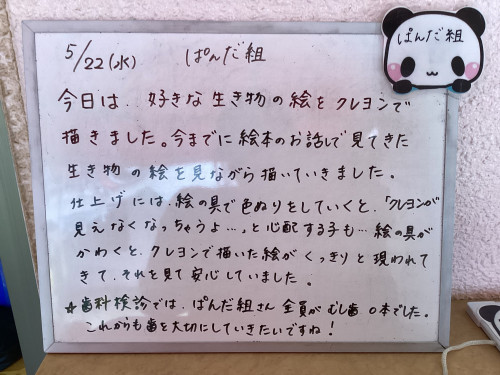 5/22(水) ぱんだ組
ぱんだ組
今日は、好きな生き物の絵をクレヨンで
描きました。今までに絵本のお話しで見てきた
生き物の絵を見ながら描いていきました。
仕上げには、絵の具で色ぬりをしていくと、「クレヨンが
見えなくなっちゃうよ…」と心配する子も…絵の具が
かわくと、クレヨンで描いた絵がくっきりと現われて
きて、それを見て安心していました。
☆歯科検診では、ぱんだ組さん全員がむし歯0本でした。
これからも歯を大切にしていきたいですね!